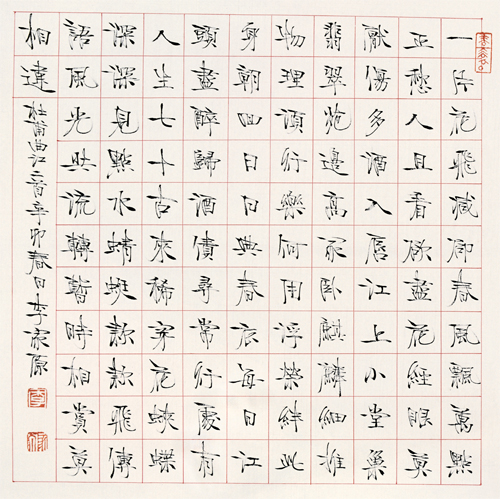 一片花飛減卻春風飄萬點
正愁人且看欲盡花經眼莫
厭傷多酒入唇江上小堂巢
翡翠苑邊高冢臥麒麟細推
物理須行樂何用浮榮絆此
身朝回日日典春衣每日江
頭盡醉歸酒債尋常行處有
人生七十古來稀穿花蛺蝶
深深見點水蜻蜓款款飛傳
語風光共流轉暫時相賞莫
相違
杜甫曲江二首辛卯春日李家原